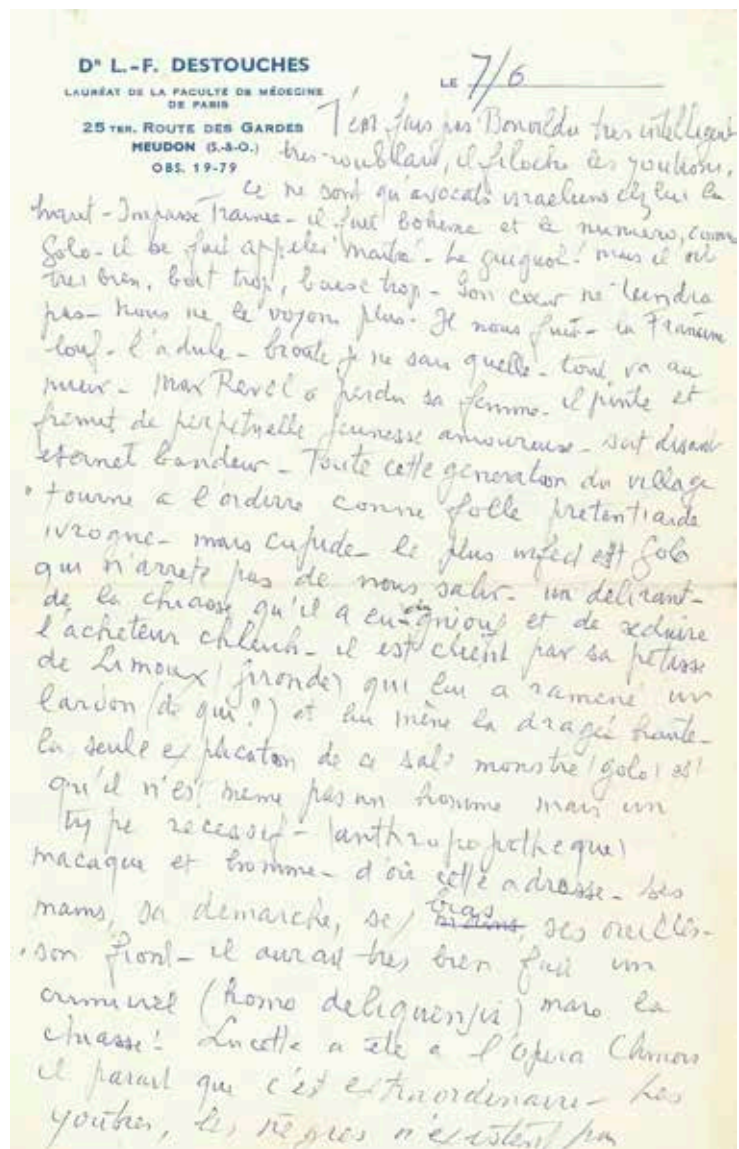 Dr L.-F. DESTOUCHES
LAURÉAT DE LA FACULTÉ DE MÉDECINE
DE PARIS
25 TER, ROUTE DES GARDES
MEUDON (S.-&-O.)
OBS. 19-79
LE 7/6
T'en fais pas Bonvilde tres intelligent
tres roublard, il filoche les youtrons,
ce ne sont qu'avocats israeliens chez lui la
haut - Impasse Trainée - il fait boheme et le numero, comme
Golo - il se fait appeler "maitre" - Le guignol! mais il est
tres bien, boit trop, baise trop - Son cœur ne tiendra
pas - Nous ne le voyons plus. Il nous fuit - la Francine
louf - l'adule - broute je ne sais quelle - tout va au
mieux - Max Revol a perdu sa femme - il pinte et
fremit de perpetuelle jeunesse amoureuse - soit disant
eternel bandeur - Toute cette generation du village
tourne a l'ordure conne folle pretentiarde
ivrogne - mais cupide - le plus infect est Golo
qui n'arrete pas de nous salir - un delirant -
de la chiasse qu'il a eu des gnioufs et de seduire
l'acheteur chleuh - il est client par sa petasse
de Limoux (gironde) qui lui a ramené un
lardon (de qui?) et lui mène la dragée haute -
la seule explication de ce sale monstre (golo) est
qu'il n'est meme pas un homme mais un
type recessif - (anthropopitheque)
macaque et homme - d'où cette adresse - ses
mains, sa demarche, ses bras, ses oreilles -
son front - il aurait tres bien fait un
criminel (homo deliquensis) mais la
chiasse! Lucette a été a l'opera Chinois
il parait que c'est extraordinaire - Les
youtres, les negres n'existent pas